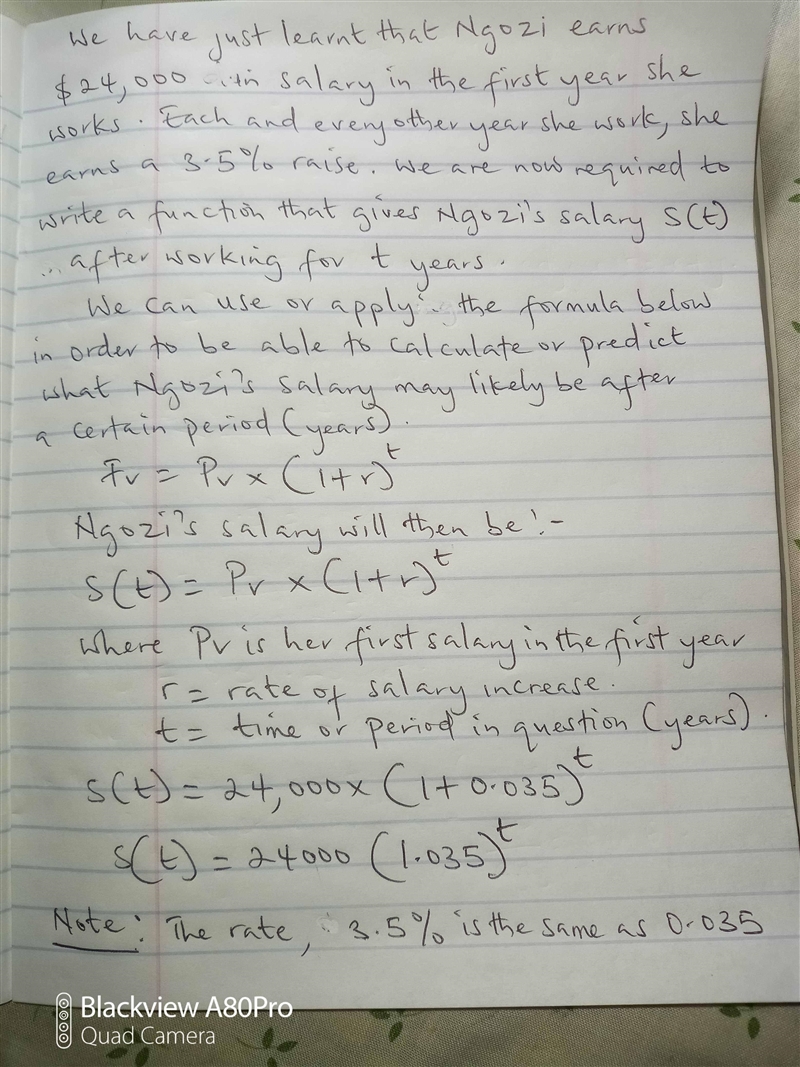 We have just learnt that Ngozi earns
$24,000 in salary in the first year she
works. Each and every other year she work, she
earns a 3.5% raise. We are now required to
write a function that gives Ngozi's salary S(t)
... after working for t years.
We can use or apply the formula below
in order to be able to calculate or predict
what Ngozi's salary may likely be after
a certain period (years).
Fv = Pv x (1+r)^t
Ngozi's salary will then be :-
S(t) = Pv x (1+r)^t
where Pv is her first salary in the first year
r = rate of salary increase.
t = time or period in question (years).
S(t) = 24,000 x (1+0.035)^t
S(t) = 24000 (1.035)^t
Note: The rate, 3.5% is the same as 0.035
Blackview A80Pro
Quad Camera